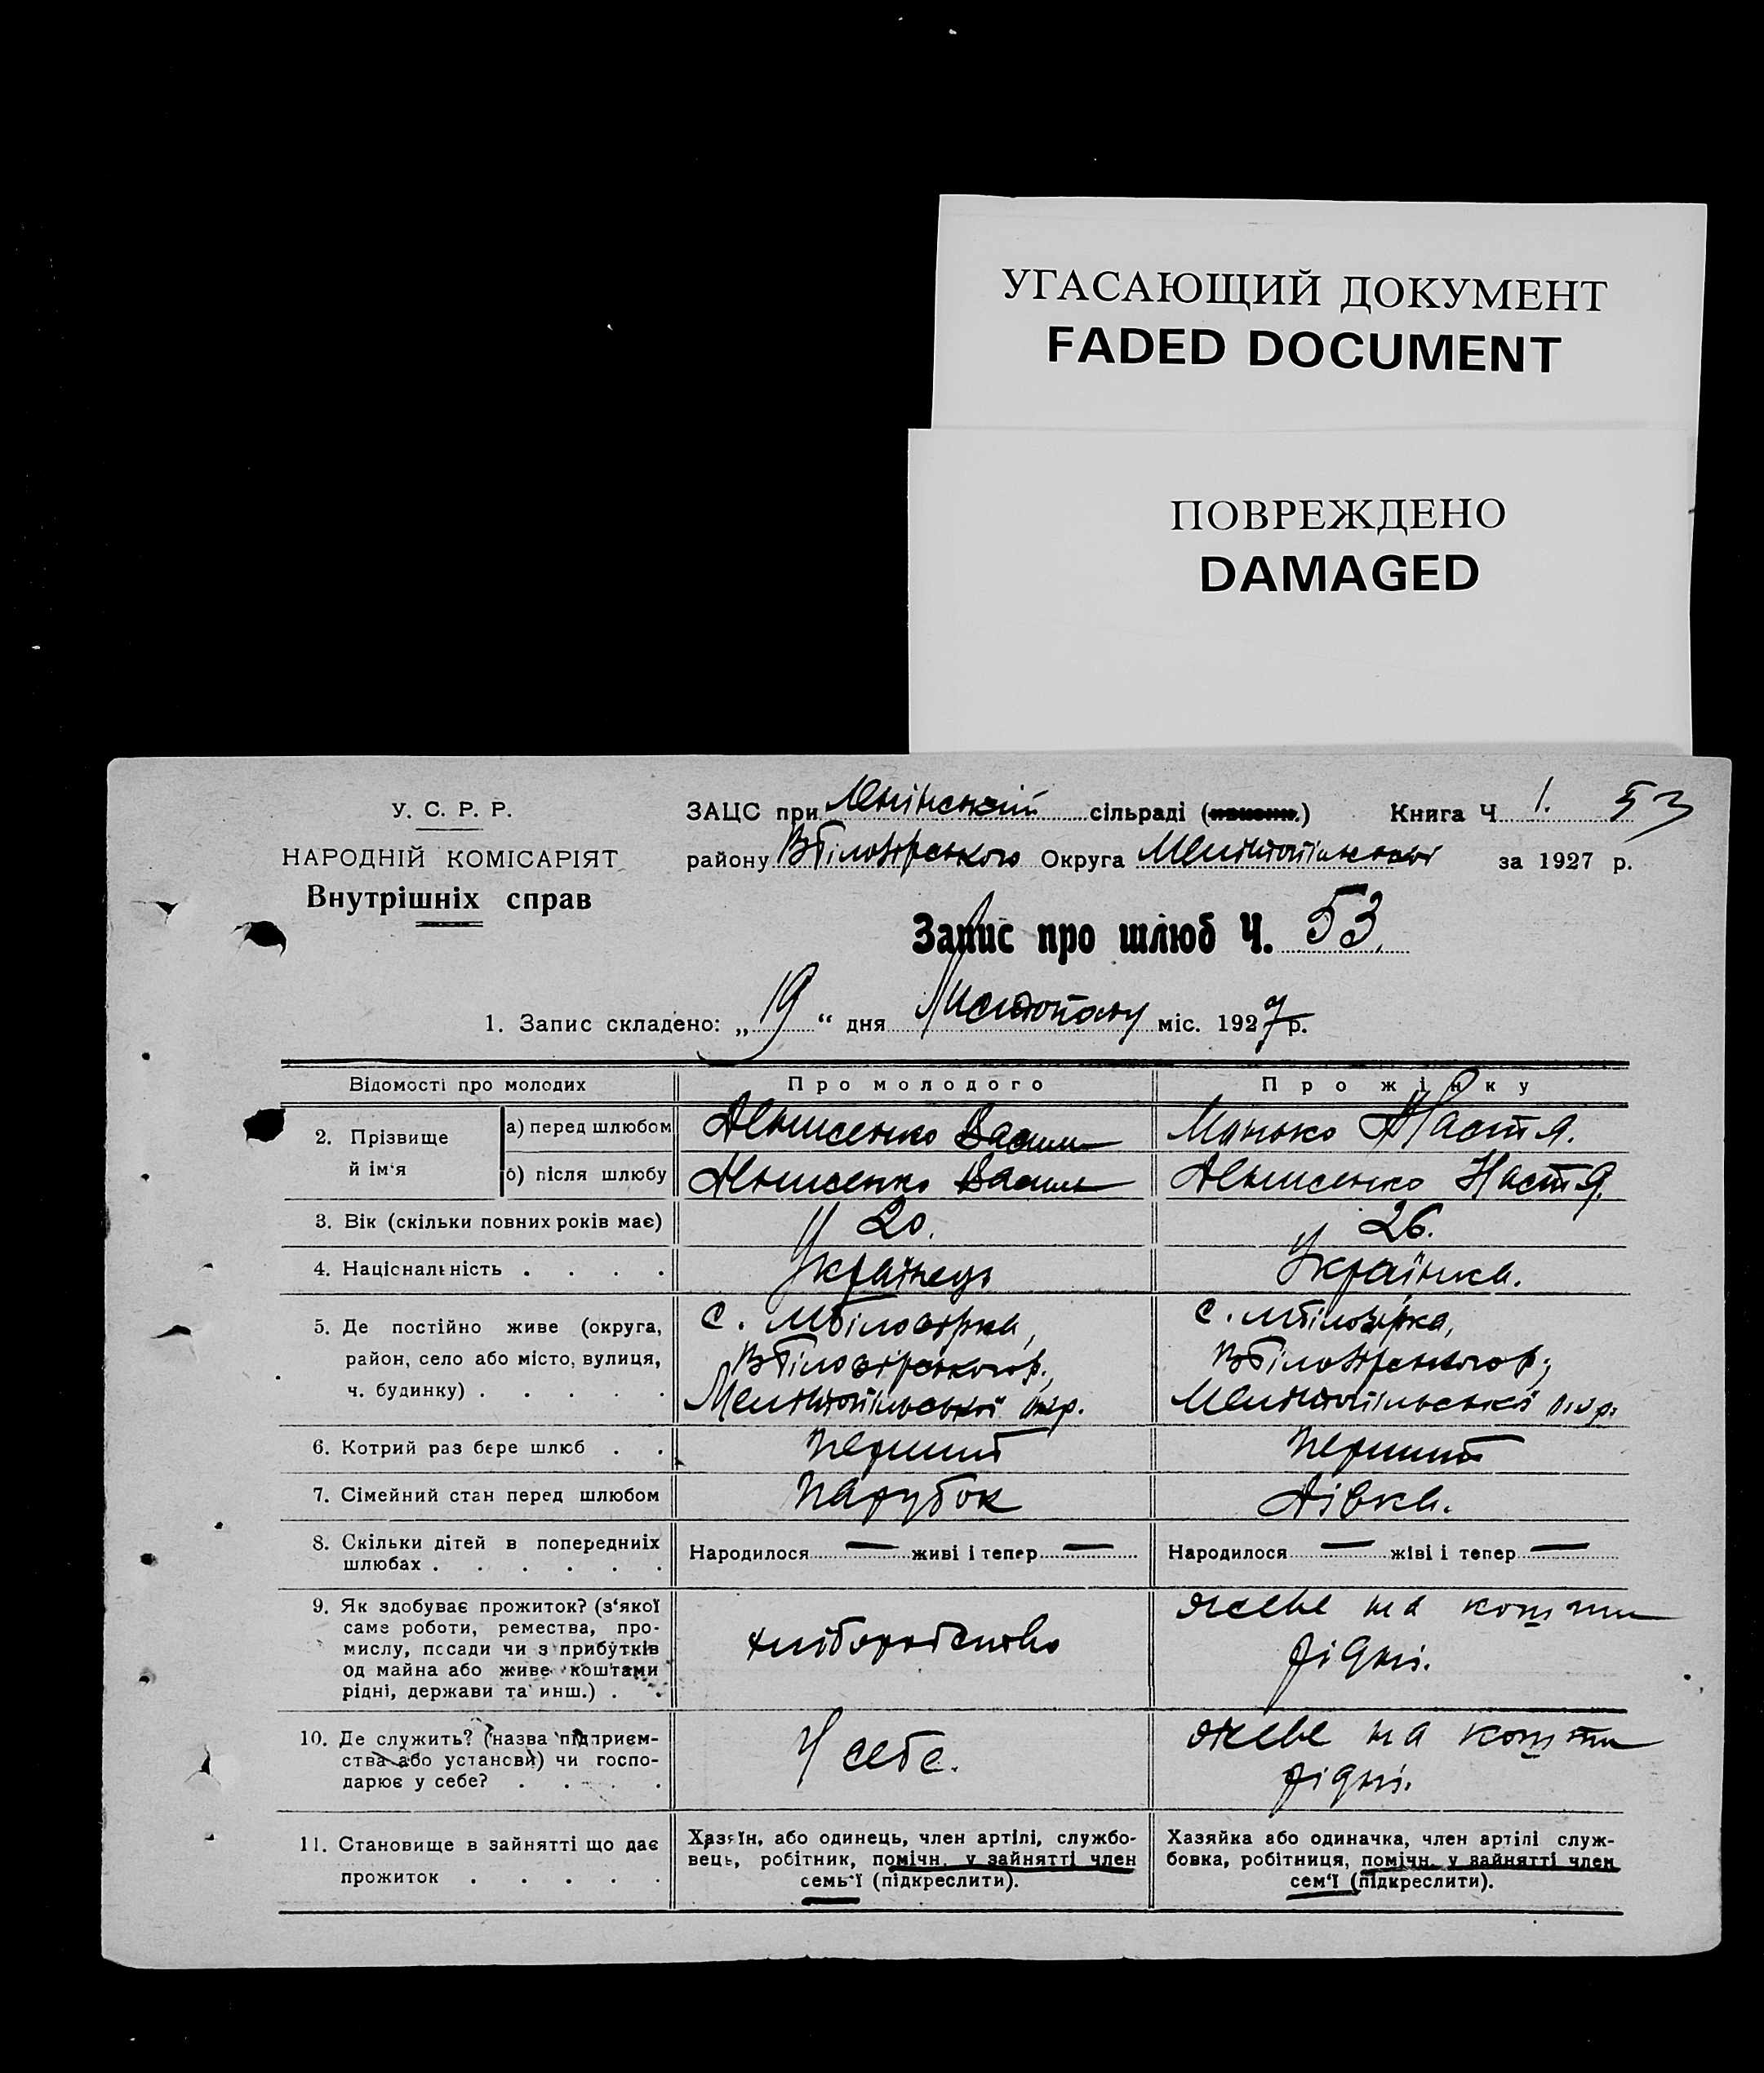 УГАСАЮЩИЙ ДОКУМЕНТ
FADED DOCUMENT
ПОВРЕЖДЕНО
DAMAGED
У. С. Р. Р.
НАРОДНІЙ КОМІСАРІЯТ
Внутрішніх справ
ЗАЦС при Ленінській сільраді Книга Ч 1. 53
району ВБілозірського Округа Мелітопільської за 1927 р.
Запис про шлюб Ч. 53
1. Запис складено: „19“ дня Листопаду міс. 1927 р.
Відомості про молодих Про молодого Про жінку
2. Прізвище й ім‘я
а) перед шлюбом Денисенко Василь Манько Настя.
б) після шлюбу Денисенко Василь Денисенко Настя.
3. Вік (скільки повних років має) 20. 26.
4. Національність . . . . Українець Українка.
5. Де постійно живе (округа, район, село або місто, вулиця, ч. будинку) . . . . .
с. МБілозірка,
ВБілозірського р.,
Мелітопільської окр.
с. МБілозірка,
ВБілозірського р.,
Мелітопільської окр.
6. Котрий раз бере шлюб . . Перший Перший
7. Сімейний стан перед шлюбом Парубок Дівка.
8. Скільки дітей в попередниіх шлюбах . . . . . .
Народилося — живі і тепер —
Народилося — жіві і тепер —
9. Як здобуває прожиток? (з‘якої
саме роботи, ремества, про-
мислу, посади чи з прибутків
од майна або живе коштами
рідні, держави та инш.) . .
хліборобство
живе на кошти
рідні.
10. Де служить? (назва підприєм-
ства або установи) чи госпо-
дарює у себе? . . . .
У себе.
живе на кошти
рідні.
11. Становище в зайнятті що дає
прожиток . . . . .
Хазяїн, або одинець, член артілі, службо-
вець, робітник, помічн. у зайнятті член
семь‘ї (підкреслити).
Хазяйка або одиначка, член артілі служ-
бовка, робітниця, помічн. у зайнятті член
сем‘ї (підкреслити).